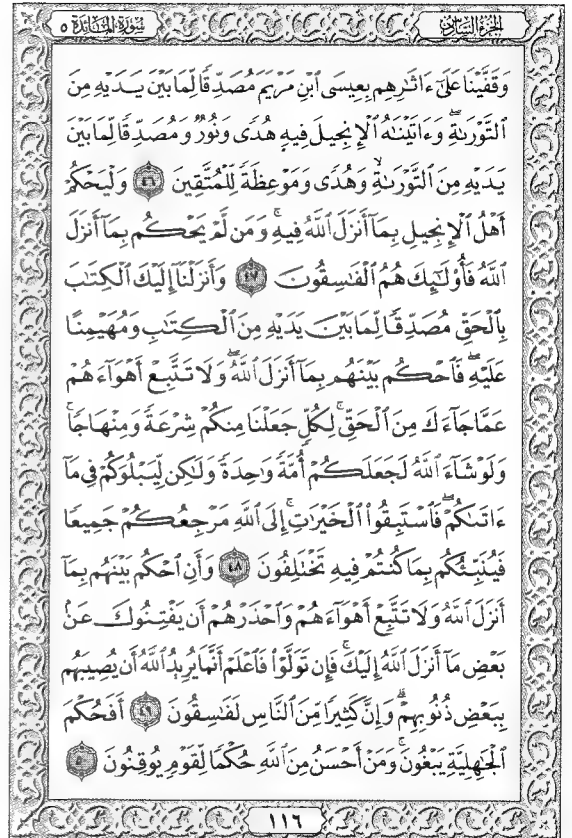 سُورَةُ المَائِدَة ٥
الجُزءُ السَّادِسُ
وَقَفَّيْنَا عَلَىٰٓ ءَاثَٰرِهِم بِعِيسَى ٱبْنِ مَرْيَمَ مُصَدِّقًا لِّمَا بَيْنَ يَدَيْهِ مِنَ
ٱلتَّوْرَىٰةِۖ وَءَاتَيْنَٰهُ ٱلْإِنجِيلَ فِيهِ هُدًى وَنُورٌ وَمُصَدِّقًا لِّمَا بَيْنَ
يَدَيْهِ مِنَ ٱلتَّوْرَىٰةِ وَهُدًى وَمَوْعِظَةً لِّلْمُتَّقِينَ ٤٦ وَلْيَحْكُمْ
أَهْلُ ٱلْإِنجِيلِ بِمَآ أَنزَلَ ٱللَّهُ فِيهِۚ وَمَن لَّمْ يَحْكُم بِمَآ أَنزَلَ
ٱللَّهُ فَأُو۟لَٰٓئِكَ هُمُ ٱلْفَٰسِقُونَ ٤٧ وَأَنزَلْنَآ إِلَيْكَ ٱلْكِتَٰبَ
بِٱلْحَقِّ مُصَدِّقًا لِّمَا بَيْنَ يَدَيْهِ مِنَ ٱلْكِتَٰبِ وَمُهَيْمِنًا
عَلَيْهِۖ فَٱحْكُم بَيْنَهُم بِمَآ أَنزَلَ ٱللَّهُۖ وَلَا تَتَّبِعْ أَهْوَآءَهُمْ
عَمَّا جَآءَكَ مِنَ ٱلْحَقِّۚ لِكُلٍّ جَعَلْنَا مِنكُمْ شِرْعَةً وَمِنْهَاجًاۚ
وَلَوْ شَآءَ ٱللَّهُ لَجَعَلَكُمْ أُمَّةً وَٰحِدَةً وَلَٰكِن لِّيَبْلُوَكُمْ فِى مَآ
ءَاتَىٰكُمْۖ فَٱسْتَبِقُوا۟ ٱلْخَيْرَٰتِۚ إِلَى ٱللَّهِ مَرْجِعُكُمْ جَمِيعًا
فَيُنَبِّئُكُم بِمَا كُنتُمْ فِيهِ تَخْتَلِفُونَ ٤٨ وَأَنِ ٱحْكُم بَيْنَهُم بِمَآ
أَنزَلَ ٱللَّهُ وَلَا تَتَّبِعْ أَهْوَآءَهُمْ وَٱحْذَرْهُمْ أَن يَفْتِنُوكَ عَنۢ
بَعْضِ مَآ أَنزَلَ ٱللَّهُ إِلَيْكَۖ فَإِن تَوَلَّوْا۟ فَٱعْلَمْ أَنَّمَا يُرِيدُ ٱللَّهُ أَن يُصِيبَهُم
بِبَعْضِ ذُنُوبِهِمْۗ وَإِنَّ كَثِيرًا مِّنَ ٱلنَّاسِ لَفَٰسِقُونَ ٤٩ أَفَحُكْمَ
ٱلْجَٰهِلِيَّةِ يَبْغُونَۚ وَمَنْ أَحْسَنُ مِنَ ٱللَّهِ حُكْمًا لِّقَوْمٍ يُوقِنُونَ ٥٠
١١٦